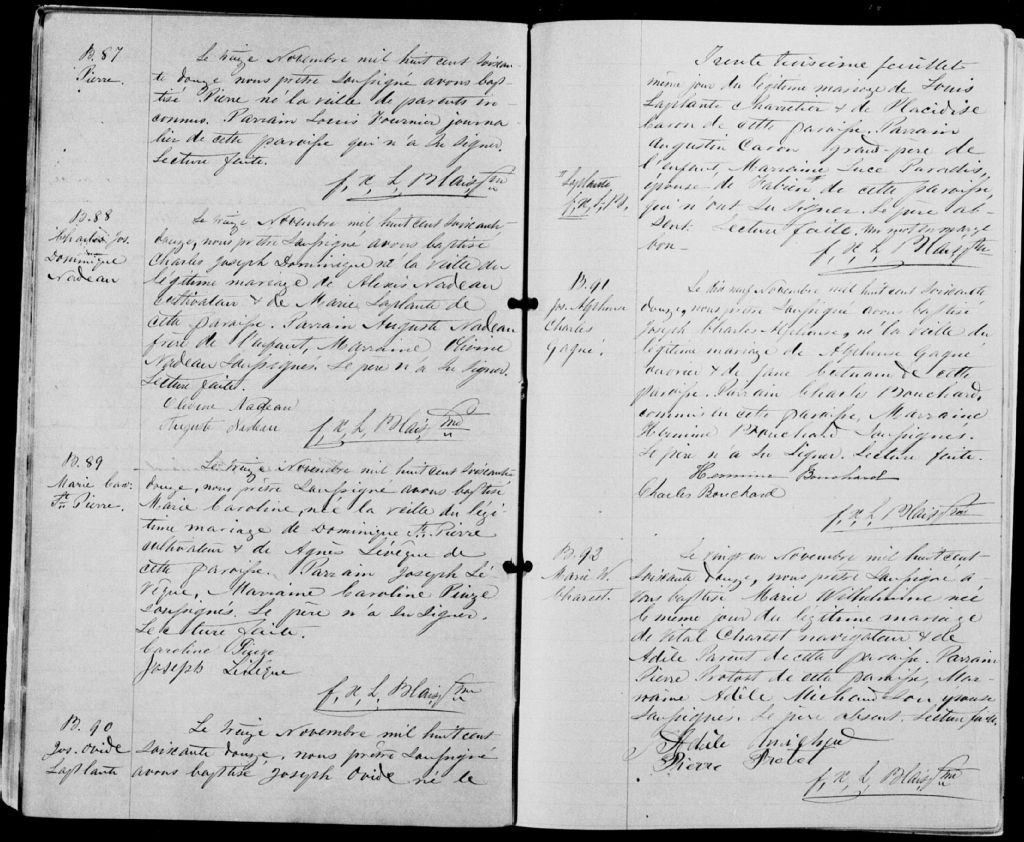 B. 87
Pierre.
Le treize Novembre mil huit cent soixan-
te douze nous prêtre soussigné avons bap-
tisé Pierre né la veille de parents in-
connus. Parrain Louis Fournier journa-
lier de cette paroisse qui n'a su signer.
Lecture faite.
f, x, L, Blais, Ptre
B. 88
Chs Jos.
Dominique
Nadeau
Le treize Novembre mil huit cent soixante
douze, nous prêtre soussigné avons baptisé
Charles Joseph Dominique né la veille du
légitime mariage de Alexis Nadeau
cultivateur & de Marie Laplante de
cette paroisse. Parrain Auguste Nadeau
frère de l'enfant, Marraine Olivine
Nadeau soussignés. Le père n'a su signer.
Lecture faite.
Olivine Nadeau
Auguste Nadeau
f, x, L, Blais, Ptre
B. 89
Marie Car:
St. Pierre.
Le treize Novembre mil huit cent soixante
douze, nous prêtre soussigné avons baptisé
Marie Caroline, née la veille du légi-
time mariage de Dominique St. Pierre
cultivateur & de Agnes Lévêque de
cette paroisse. Parrain Joseph Lé-
vêque, Marraine Caroline Pinze
soussignés. Le père n'a su signer.
Lecture faite.
Caroline
Joseph Lévêque
f, x, L, Blais, Ptre
B. 90
Jos. Ovide
Laplante
Le treize Novembre mil huit cent
soixante douze, nous prêtre soussigné
avons baptisé Joseph Ovide né le
Trente troisième feuillet
même jour du légitime mariage de Louis
Laplante charretier & de Placidise
Caron de cette paroisse. Parrain
Augustin Caron grand-père de
l'enfant, Marraine Luce Paradis,
épouse de Fabien de cette paroisse,
qui n'ont su signer. Le père ab-
sent. Lecture faite. Un mot en marge
bon-
" Laplante
f, x, L, B,
f, x, L, Blais, Ptre
B. 91
Jos. Alphonse
Charles
Gagné.
Le dix neuf Novembre mil huit cent soixante
douze, nous prêtre soussigné avons baptisé
Joseph Charles Alphonse, né la veille du
légitime mariage de Alphonse Gagné
ouvrier & de Jane de cette
paroisse. Parrain Charles Bouchard,
commis en cette paroisse, Marraine
Hermine Bouchard soussignés.
Le père n'a su signer. Lecture faite.
Hermine Bouchard
Charles Bouchard
f, x, L, Blais, Ptre
B. 92
Marie W.
Charest.
Le vingt un Novembre mil huit cent
soixante douze, nous prêtre soussigné a-
vons baptisé Marie Wilhelmine née
le même jour du légitime mariage
de Vital Charest navigateur & de
Adèle Parent de cette paroisse. Parrain
Pierre Protost de cette paroisse, Mar-
raine Adèle Michaud son épouse
soussignés. Le père absent. Lecture faite.
Adèle
Pierre
f, x, L, Blais, Ptre